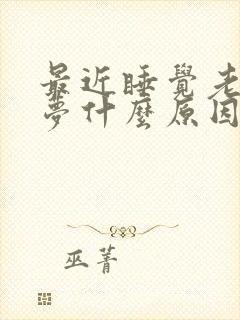 最近睡覺老
夢什麼原因
巫菁